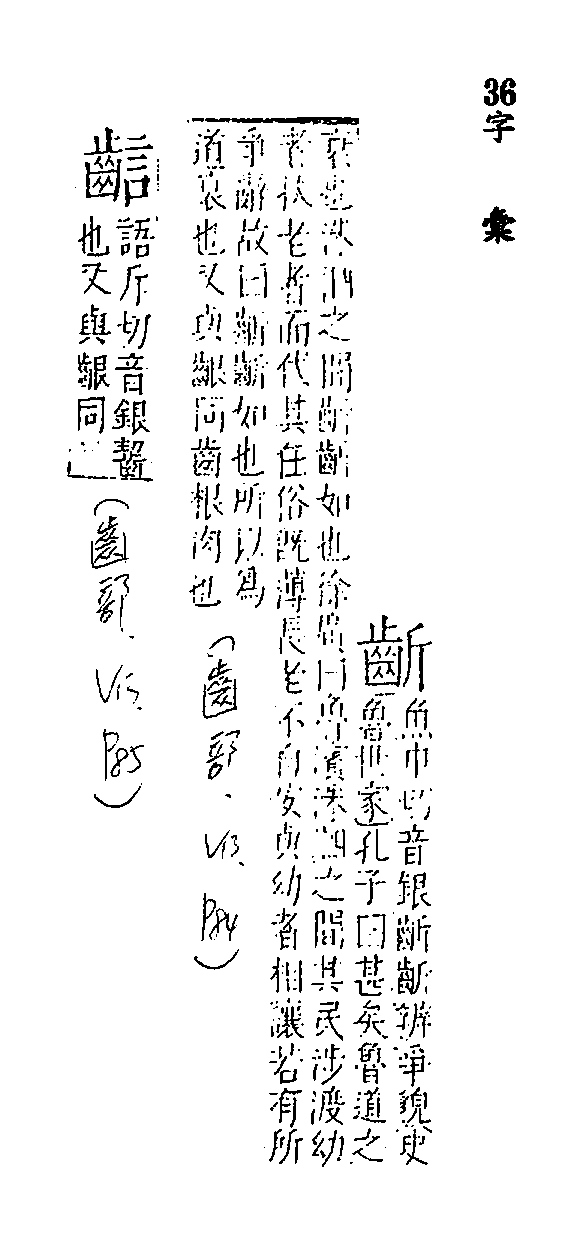 36字 彙
齗
魚巾切音銀齗齗辨爭貌史
魯世家孔子曰甚矣魯道之
衰也洙泗之間齗齗如也徐廣曰魯濱洙泗之間其民涉渡幼
者扶老者而代其任俗旣薄長老不自安與幼者相讓若有所
爭辭故曰齗齗如也所以爲
道衰也又與齦同齒根肉也
(齒部、V13、P84)
語斤切音銀齧
也又與齦同
(齒部、V13、P85)